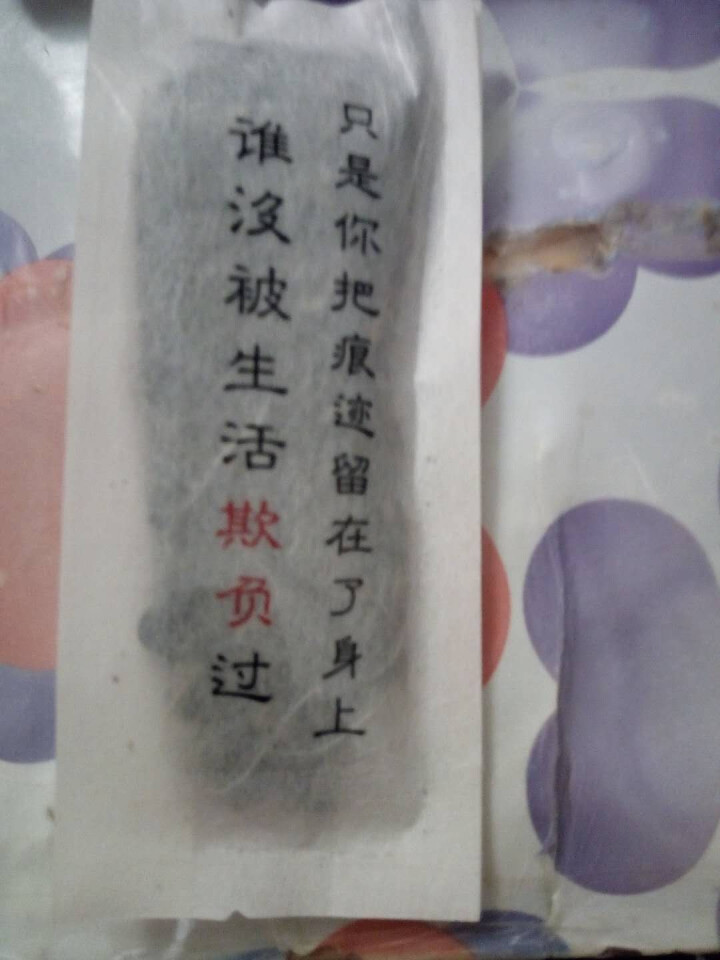 谁没被生活欺负过
只是你把痕迹留在了身上